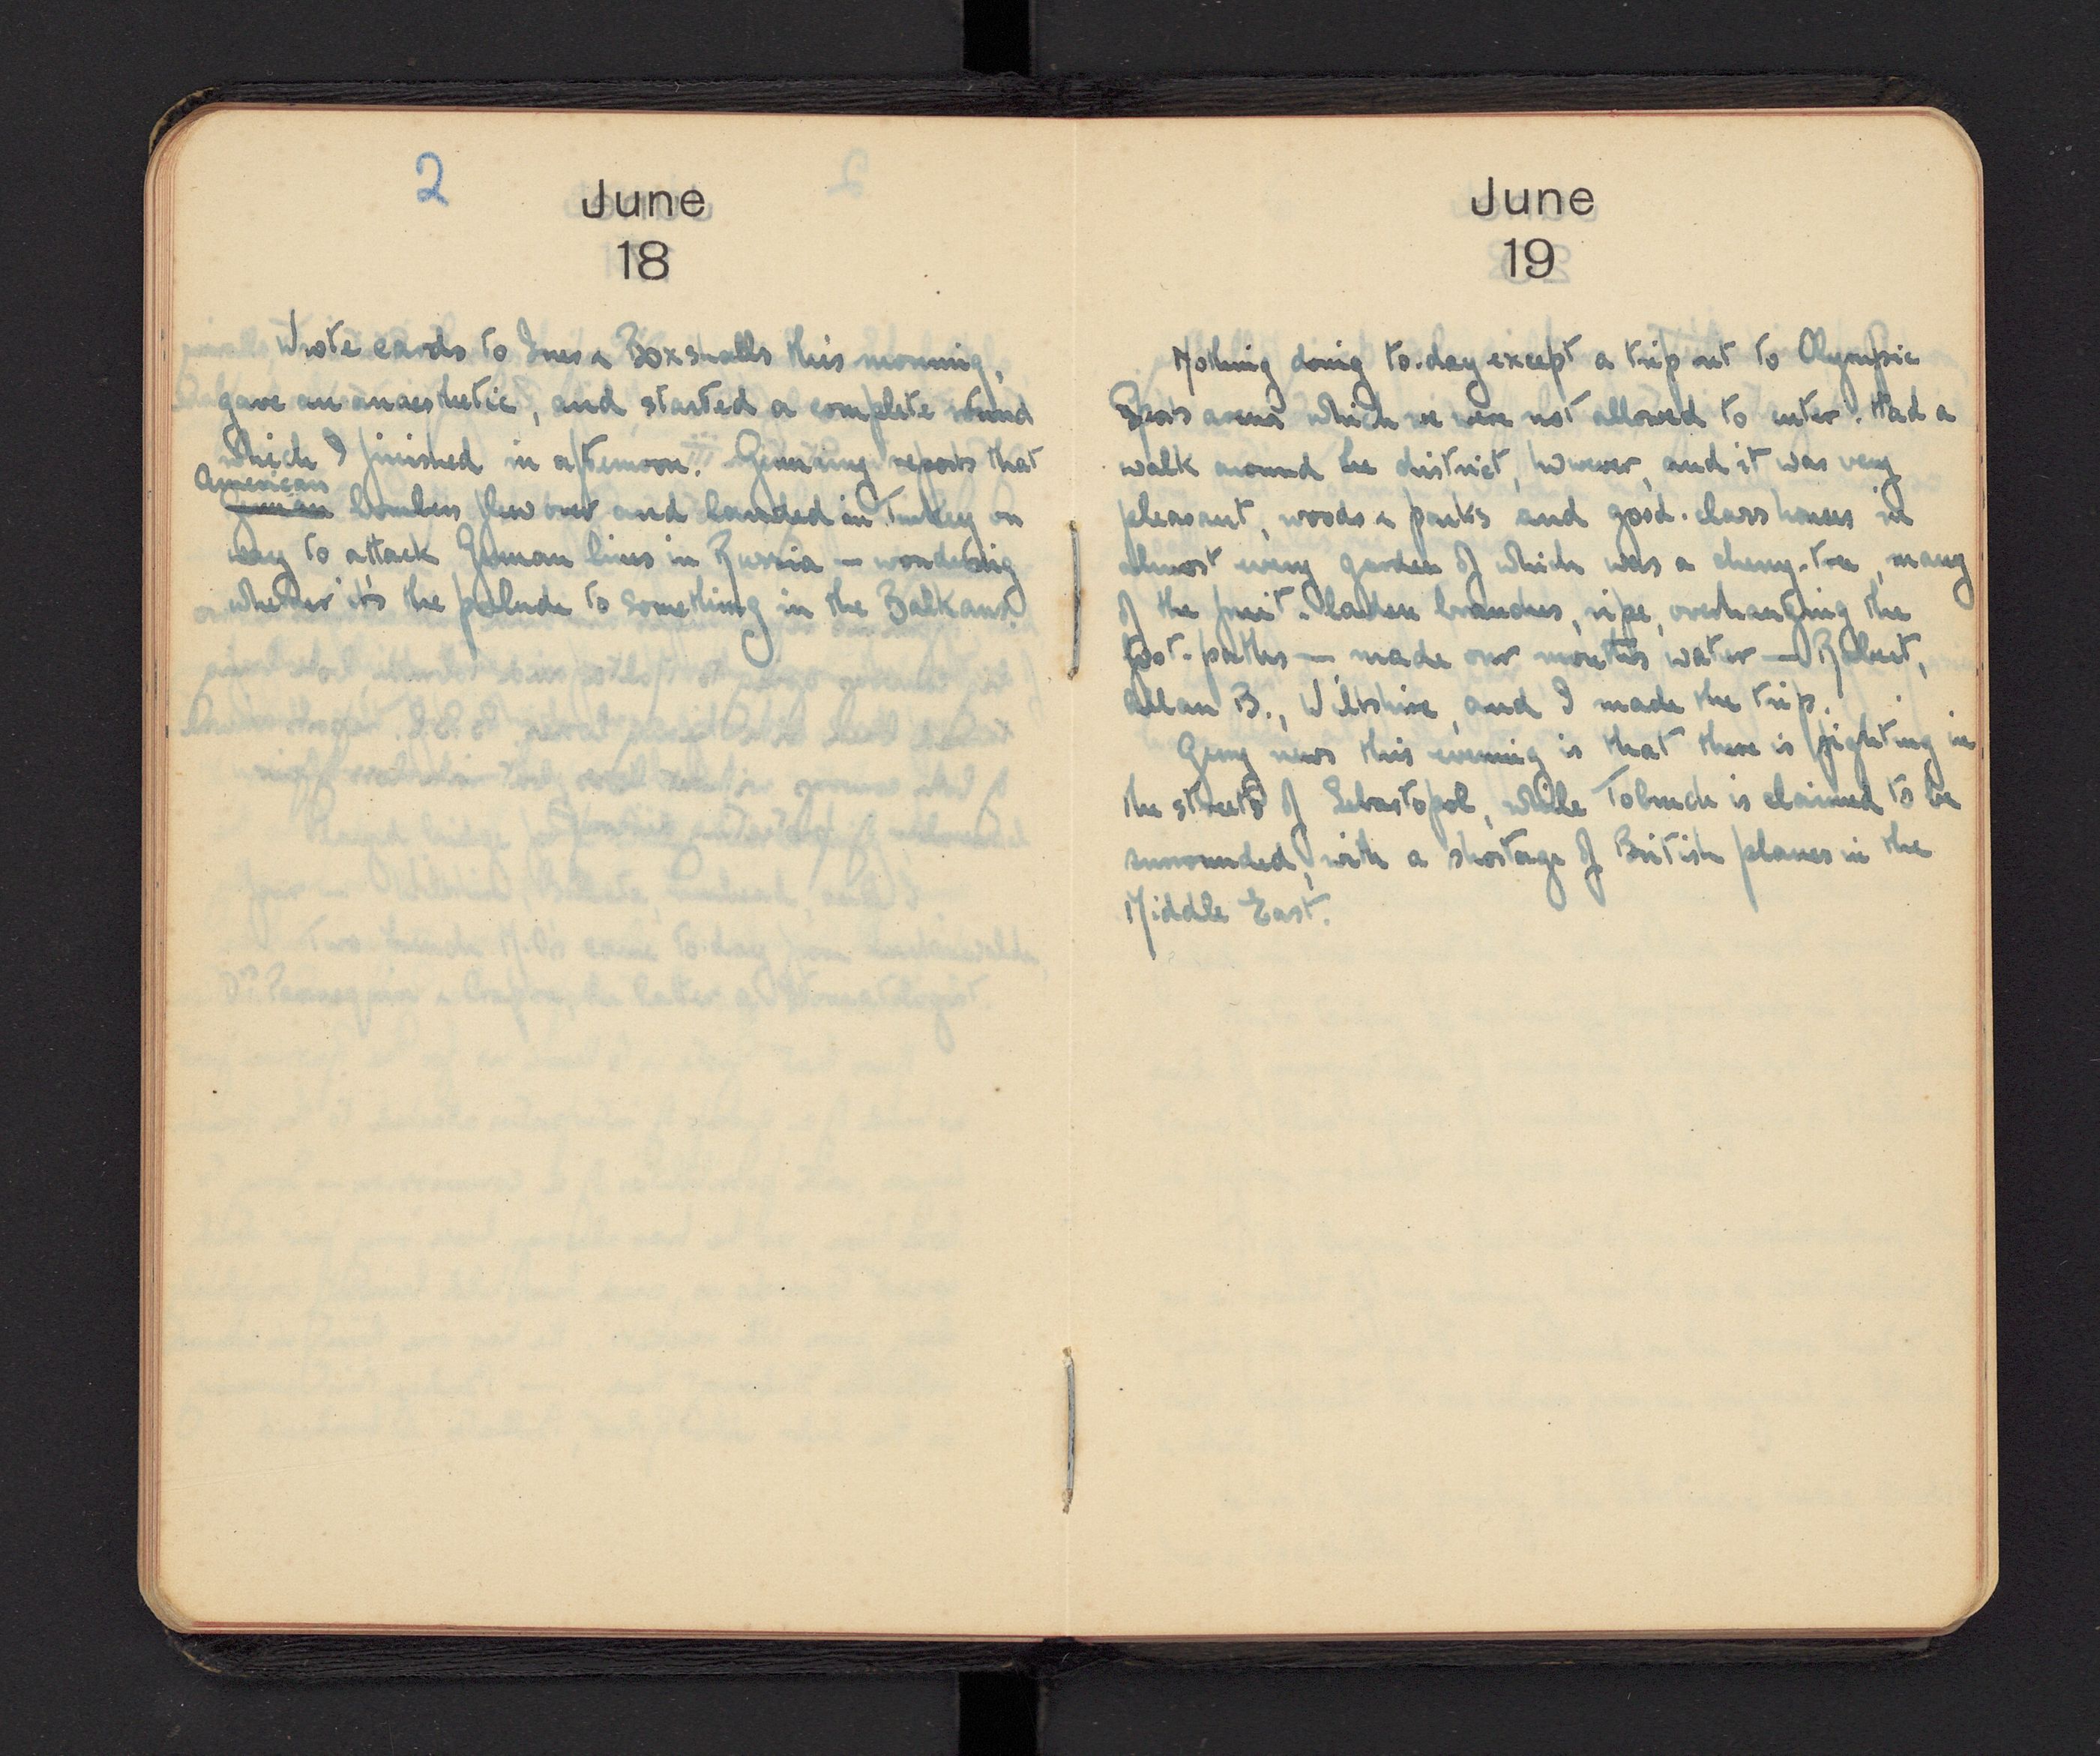 2
June
18
Wrote cards to Ines & Boxshalls this morning,
gave an anaesthetic, and started a complete round
which I finished in afternoon. Germany reports that
American
German bombers flew over and landed in Turkey on
way to attack German lines in Russia — wondering
whether it's the prelude to something in the Balkans.
June
19
Nothing doing to-day except a trip out to Olympic
Sports arena which we were not allowed to enter. Had a
walk around the district, however, and it was very
pleasant, woods & parks and good-class houses in
almost every garden of which was a cherry-tree, many
of the fruit-laden branches, ripe, overhanging the
foot-paths — made our mouths water — Robert,
Allan B., Wiltshire, and I made the trip.
Gerry news this evening is that there is fighting in
the streets of Sebastopol, while Tobruch is claimed to be
surrounded, with a shortage of British planes in the
Middle East.